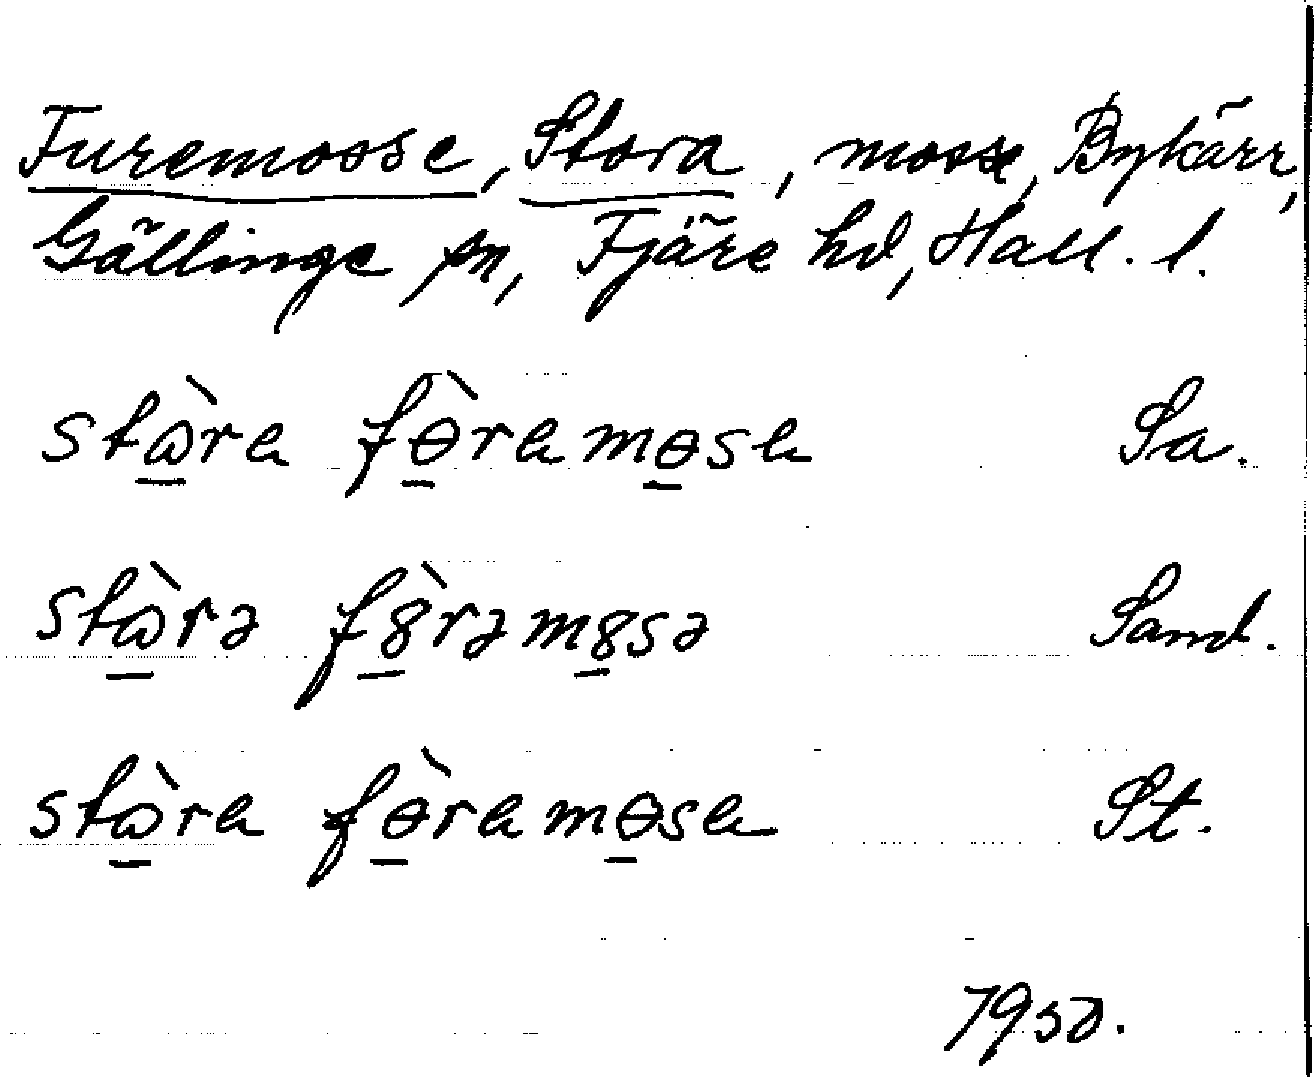 Furemosse, Stora, mosse, Bykärr,
Gällinge sn, Fjäre hd, Hall. l.
stὼ̱ra fɵ̱̀ramɵ̱sa Sa.
stὼ̱rə f8̱̀rəm8̱sə Sand.
stὼ̱ra fɵ̱̀ramɵ̱sa St.